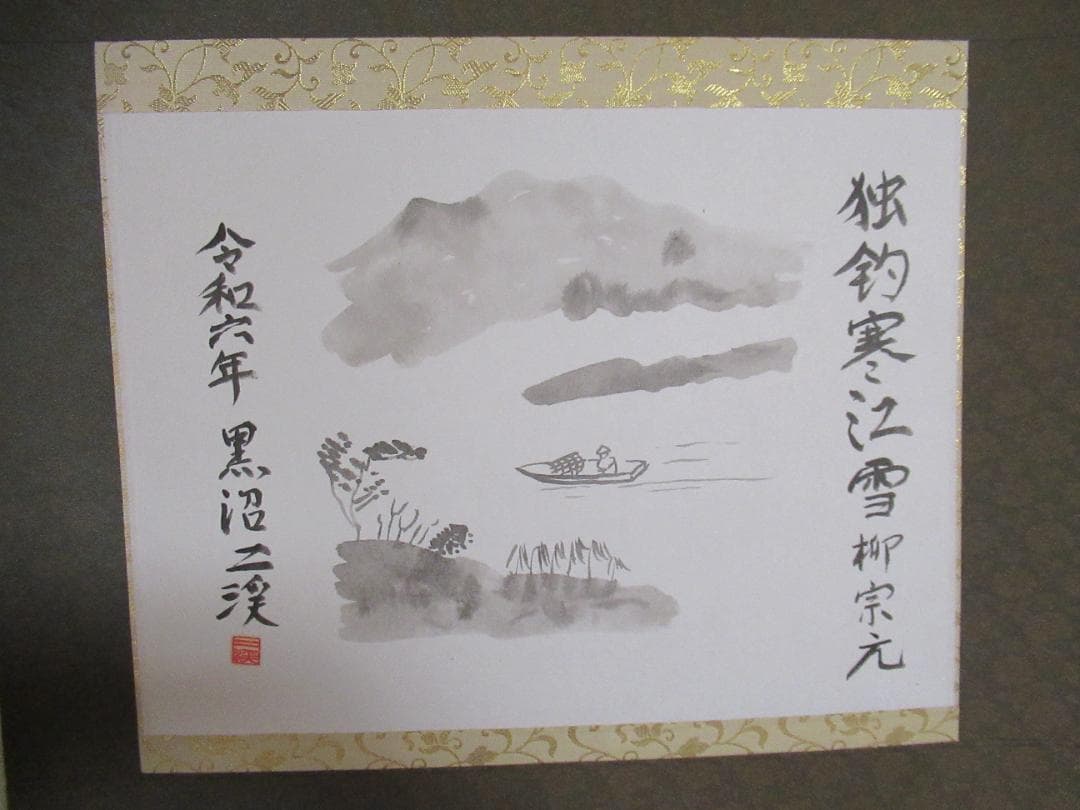 独釣寒江雪 柳宗元
令和六年 黒沼三渓